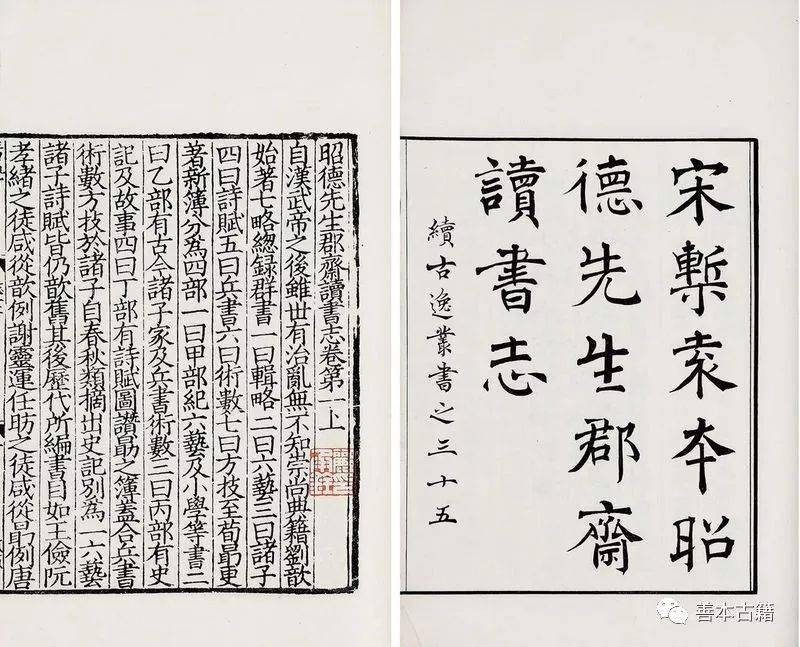 宋槧袁本昭
德先生郡齋
讀書志
續古逸叢書之三十五
昭德先生郡齋讀書志卷第一上
自漢武帝之後雖世有治亂無不知崇尚典籍劉歆
始著七略緫録群書一曰輯略二曰六藝三曰諸子
四曰詩賦五曰兵書六曰術數七曰方技至荀勗更
著新簿分爲四部一曰甲部紀六藝及小學等書二
曰乙部有古今諸子家及兵書術數三曰丙部有史
記及故事四曰丁部有詩賦圖讃勗之簿蓋合兵書
術數方技於諸子自春秋類摘出史記别爲一六藝
諸子詩賦皆仍歆舊其後歷代所編書目如王儉阮
孝緒之徒咸從歆例謝靈運任昉之徒咸從勗例唐
善本古籍